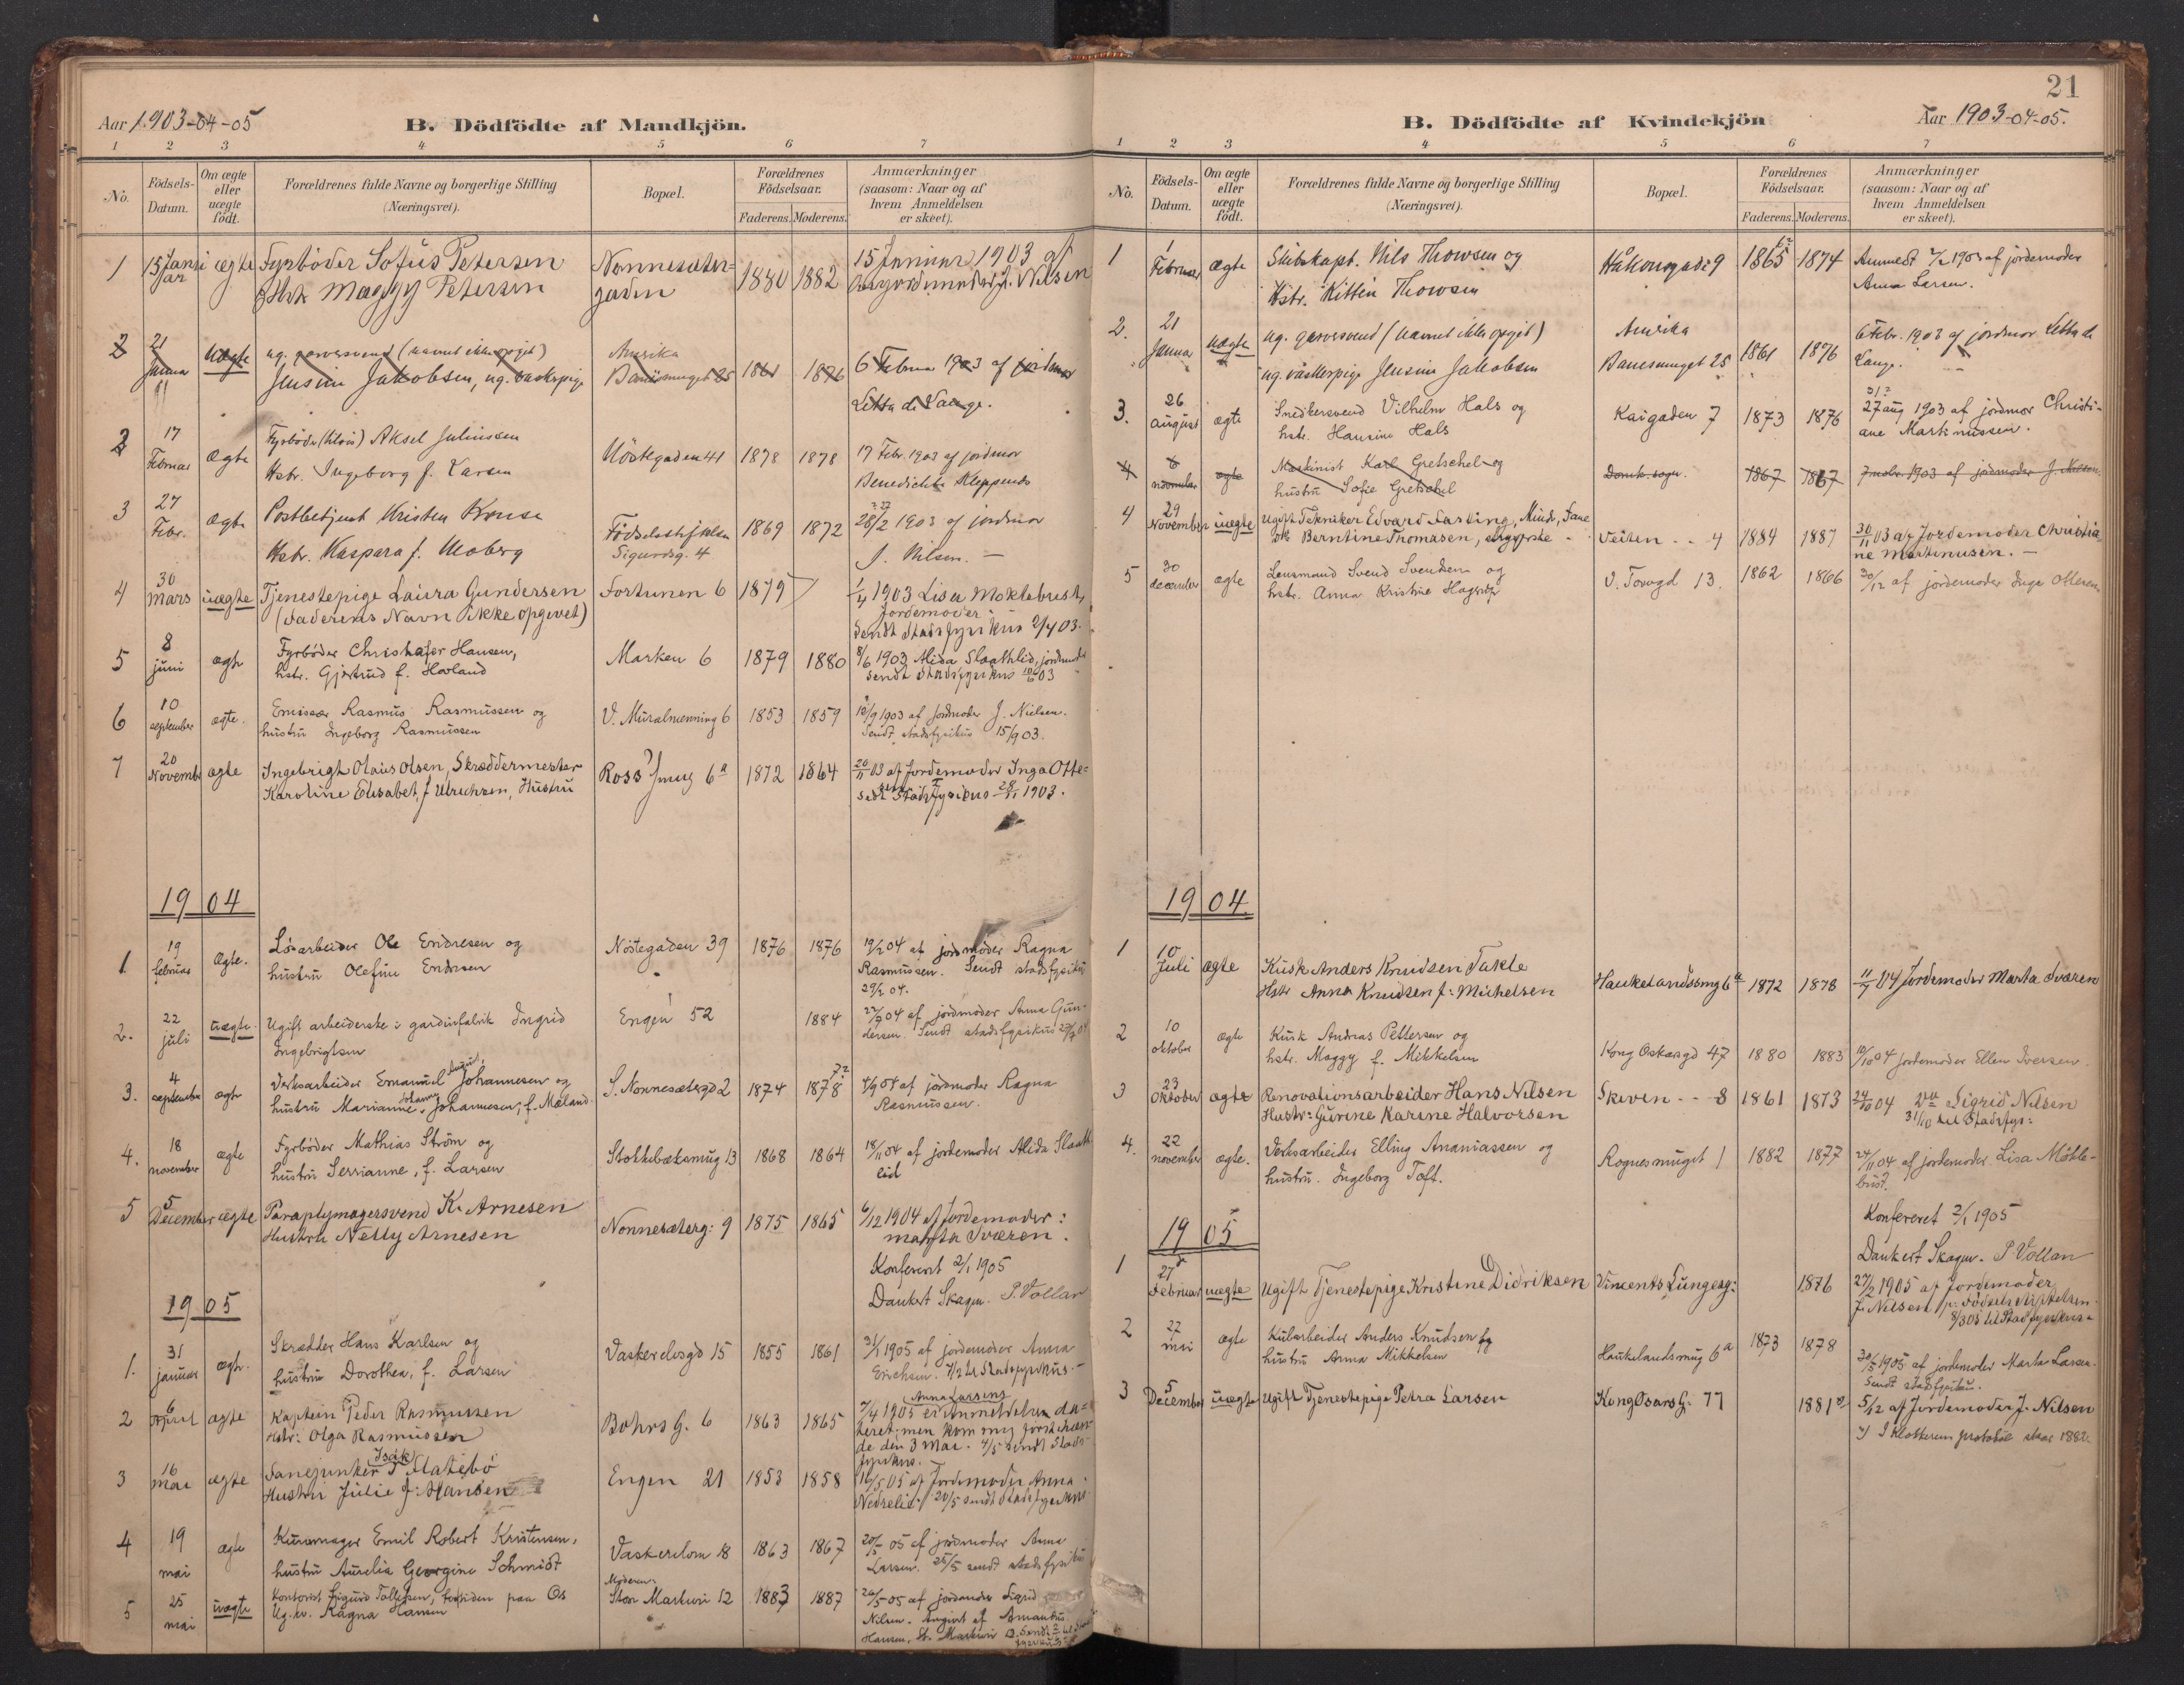 Aar 1903-04-05
B. Dödfödte af Mandkjön.
1 2 3 4 5 6 7
No.
Födsels-Datum.
Om ægte eller uægte födt.
Forældrenes fulde Navne og borgerlige Stilling (Næringsvei).
Bopæl.
Forældrenes Födselsaar.
Faderens. Moderens.
Anmærkninger (saasom: Naar og af hvem Anmeldelsen er skeet).
1 15 Janu ægte Fyrbøder Sofus Petersen Nonnesæter- 1880 1882 15 Januar 1903 af
ar Hstr Maggy Petersen gaden jordemoder J. Nilsen
2 21 Janua uægte ug. garversvend (navnet ikke opgit) Amerika 1861 1876 6 Februa 1903 af jordmor
Jensine Jakobsen, ug. vaskepige Banesmuget 25 Letta de Lange.
2 17 Februar ægte Fyrbøder Aksel Juliussen Nöstegaden 41 1878 1878 17 Febr. 1903 af jordmor
Hstr. Ingeborg f. Larsen Benedichte Kleppenes
3 27 Febr. ægte Postbetjent Kristen Krouse Födselsstiftelsen 1869 1872 28/2 1903 af jordmor
Hstr. Kaspara f. Moberg Sigurdsg. 4 J. Nilsen. —
4 30 Mars uægte Tjenestepige Laura Gundersen Fortunen 6 1879 1/4 1903 Lisa Moklebust,
(Faderens Navn ikke opgivet) Jordemoder
Sendt Stadsfysikus 2/4 03.
5 8 juni ægte Fyrbøder Christofer Hansen, Marken 6 1879 1880 8/6 1903 Alida Slaathlid, jordmoder
hstr. Gjertrud f. Hovland Sendt stadsfysikus 10/6 03
6 10 september ægte. Emissær Rasmus Rasmussen og V. Muralmenning 6 1853 1859 12/9 1903 af jordmoder J. Nielsen.
hustru Ingeborg Rasmussen Sendt stadsfysikus 15/9 03.
7 20 Novemb ægte Ingebrigt Olaus Olsen, Skræddermester Ross' Smug 6a 1872 1864 20/11 03 af Jordemoder Inga Otte=
Karoline Elisabet, f Ulrichsen, Hustru Stadsfysikus 28/11 1903.
1904
1. 19 februar ægte. Løsarbeider Ole Endresen og Nöstegaden 39 1876 1876 19/2 04 af jordmoder Ragna
hustru Olefine Endresen Rasmussen. Sendt stadsfysikus
29/2 04.
2. 22 juli uægte. Ugift arbeiderske i gardinfabrik Ingrid Engen 52 1884 27/7 04 af jordmoder Anna Gun-
Ingebrigtsen dersen. Sendt stadsfysikus 29/7 04
3. 4 september ægte Verksarbeider Emanuel Johannesen og S. Nonnesætergd 2 1874 1878 4/9 04 af jordmoder Ragna
hustru Marianne Johanne Johannesen, f. Mæland. Rasmussen.
4. 18 november ægte Fyrbøder Mathias Ström og Stokkebæksmug 13 1868 1864 18/11 04 af jordemoder Alida Slaatt
hustru Serrianne, f. Larsen lid
5 5 December ægte Paraplymagersvend K. Arnesen Nonnesæterg: 9 1875 1865 6/12 1904 af Jordemoder:
Hustru Nelly Arnesen Marta Sværen.
Konfereret 2/1 1905
Dankert Skagen. P. Vollan
1905
1. 31 januar ægte. Skrædder Hans Karlsen og Vaskerelvsgd 15 1855 1861 31/1 1905 af jordemoder Anna
hustru Dorothea, f. Larsen Erichsen. 7/2 til Stadsfysikus. -
2 6 April ægte Kaptein Peder Rasmussen Bøhrs G. 6 1863 1865 7/4 1905 er Anna Larsens Anmeldelse da=
Hstr: Olga Rasmussen teret; men kom mig først ihæn-
de den 3 Mai. 4/5 sendt Stads-
fysikus. —
3 16 Mai ægte Sanejunker Isak J Flatebö Engen 21 1853 1858 16/5 05 af Jordemoder Anna
Hustru Julie f: Hansen Nedrelid. 20/5 sendt Stadsfysikus
4 19 mai ægte Kurvmager Emil Robert Kristensen, Vaskerelven 18 1863 1867 20/5 05 af jordmoder Anna
hustru Aurelia Georgine Schmidt Larsen. 25/5 sendt stadsfysikus
5 25 mai uægte Kontorist Sigurd Tollefsen, paa Os Moderen: 1883 1887 26/5 05 af jordmoder Sigrid
Ug. kv. Ragna Hansen Store Markevei 12 Nilsen. Angivet af Amandus
Hansen, St. Markevei
21
B. Dödfödte af Kvindekjön
Aar 1903-04-05.
1 2 3 4 5 6 7
No.
Födsels-Datum.
Om ægte eller uægte födt.
Forældrenes fulde Navne og borgerlige Stilling (Næringsvei).
Bopæl.
Forældrenes Födselsaar.
Faderens. Moderens.
Anmærkninger (saasom: Naar og af hvem Anmeldelsen er skeet).
1 1 Februar ægte Skibskapt. Nils Thowsen og Håkonsgade 9 1865 1874 Anmeldt 7/2 1903 af jordemoder
Hstr. Kitten Thowsen Anna Larsen.
2. 21 Janua uægte ug. garversvend (navnet ikke opgit) Amerika 1861 1876 6 Febr. 1903 af jordmor Letta de
ug. vaskerpige Jensine Jakobsen Banesmuget 25 Lange.
3. 26 august ægte Snedkersvend Vilhelm Hals og Kaigaden 7 1873 1876 27 aug 1903 af jordmor Christi-
hstr. Hansine Hals ane Martinussen.
4 6 november ægte Maskinist Karl Gretschel og Domk. sogn. 1867 1867 7 nobr. 1903 af jordmoder J. Nilsen.
hustru Sofie Gretschel
4 29 November uægte Ugift Tekniker Edvard Farsting, Minde, Fane Veiten - - 4 1884 1887 30/11 03 af Jordemoder Christia
Berntine Thomasen, ne Martinusen. —
5 30 december ægte Lensmand Svend Svendsen og V. Torvgd 13. 1862 1866 30/12 af jordemoder Inga Ottesen
hstr. Anna Kristine
1904
1 10 Juli ægte Kusk Anders Knudsen Takle Haukelandssmug 6a 1872 1878 11/7 04 Jordemoder Marta Sværen
Hstr Anna Knudsen f: Michelsen
2 10 oktober ægte Kusk Andreas Pettersen og Kong Oskarsgd 47 1880 1883 10/10 04 jordemoder Ellen Iversen.
hstr. Maggy f. Mikkelsen
3 23 Oktober ægte Renovationsarbeider Hans Nilsen Skiven - - 8 1861 1873 24/10 04 Sigrid Nilsen
Hustr: Gurine Karine Halvorsen 31/10 til Stadsfys:
4. 22 november ægte. Verksarbeider Elling Ananiassen og Rognesmuget 1 1882 1877 24/11 04 af jordemoder Lisa Mökle-
hustru. Ingeborg Toft. bust.
Konfereret 2/1 1905
Dankert Skagen. P Vollan
1905
1 27 Februar uægte Ugift Tjenestepige Kristine Didriksen Vincents Lungesg: 1876 27/2 1905 af Jordemoder
J. Nilsen p: Fødselsstiftelsen.
8/3 05 til Stadsfysikus-
2 27 mai ægte Kularbeider Anders Knudsen og Haukelandsmug 6a 1873 1878 30/5 1905 af jordemoder Marta Larsen.
hustru Anna Mikkelsen Sendt stadsfysikus.
3 5 December uægte Ugift Tjenestepige Petra Larsen Kong Osars G. 77 1881 5/12 af Jordemoder J. Nilsen
I Klokkerens protokol staar 1882.